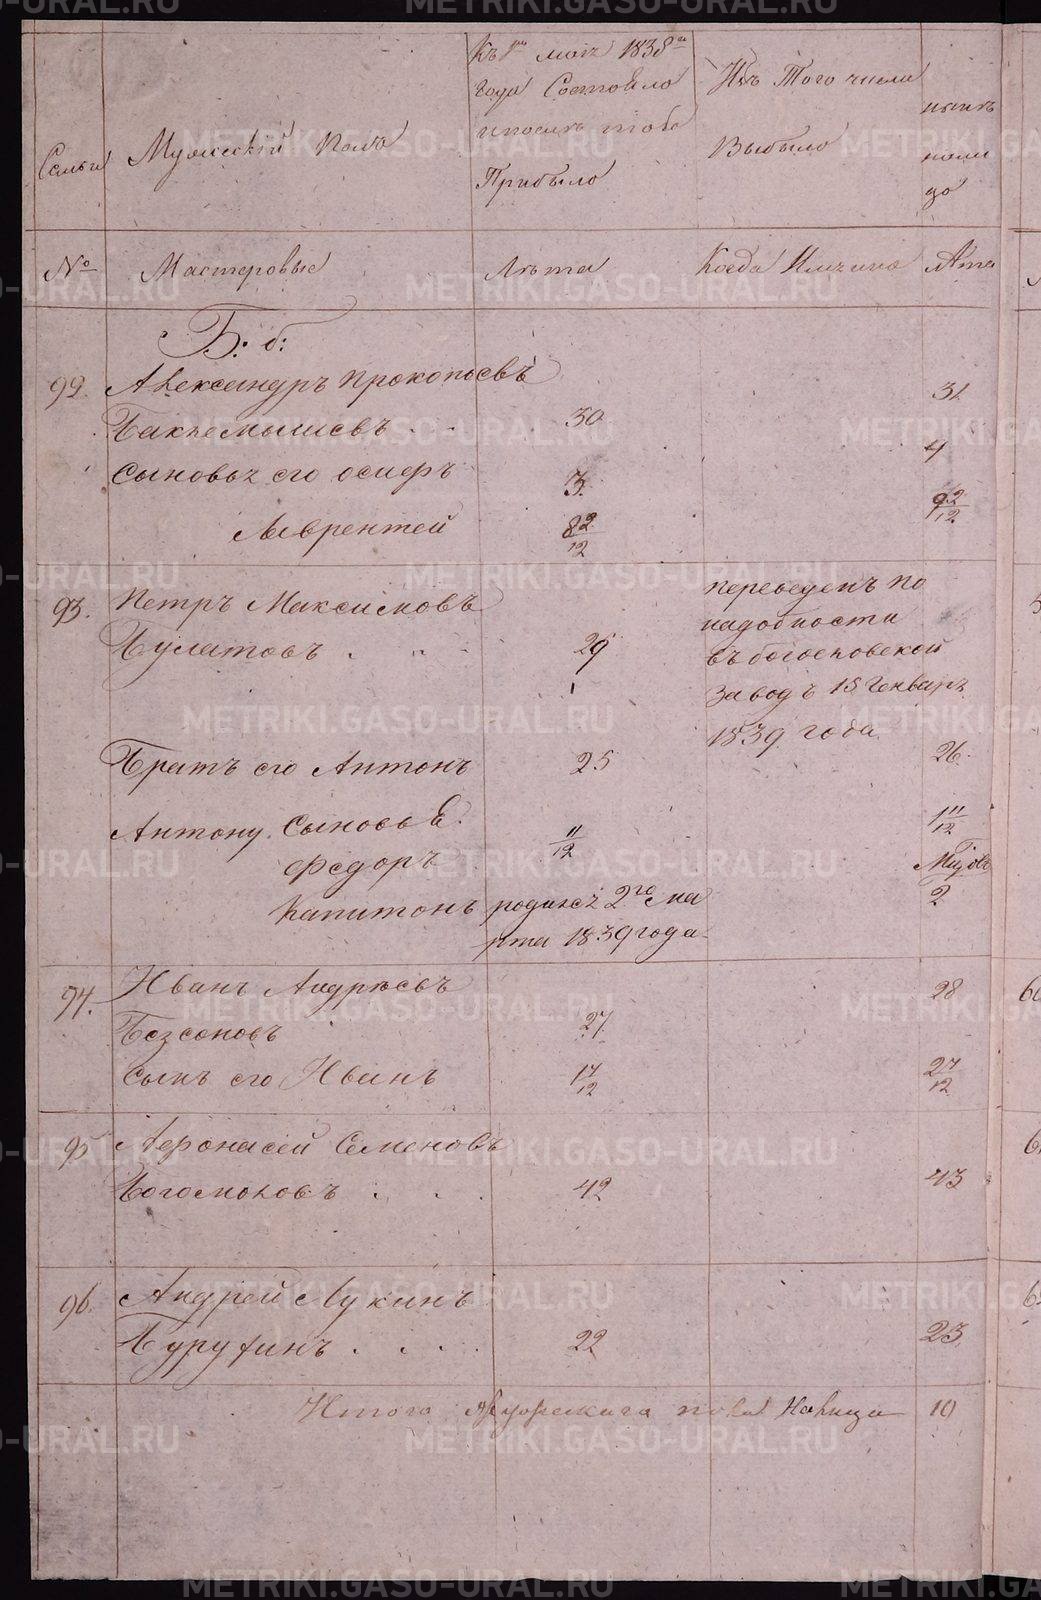 Семьи
Мужескій Полъ
Къ 1му маія 1838го
года Состояло
и после того
Прибыло
Изъ Того числа
Выбыло
нынѣ
нали
цо
№
Мастеровые
Лѣта
Когда Имянно
Лѣта
Б: б:
92. Александръ Прокопьевъ
Баклемышевъ . . 30 31
Сыновья его осифъ 3. 4
Лаврентей 8 2/12 9 2/12
93. Петръ Максимовъ
Булатовъ . . . 29
переведенъ по
надобности
въ богословской
заводъ 15 Генваря
1839 года
Братъ его Антонъ 25 26.
Антону Сыновья
федоръ 11/12 1 11/12
Капитонъ родился 2го ма
рта 1839 года
2
94. Иванъ Андреевъ
Безсоновъ 27 28
Сынъ его Иванъ 1 7/12 2 7/12
95 Афонасей Семеновъ
Богомоловъ . . . 42 43
96. Андрей Лукинъ
Бурухинъ . . . . 22 23
Итого мужескаго пола Налицо 10
METRIKI.GASO-URAL.RU